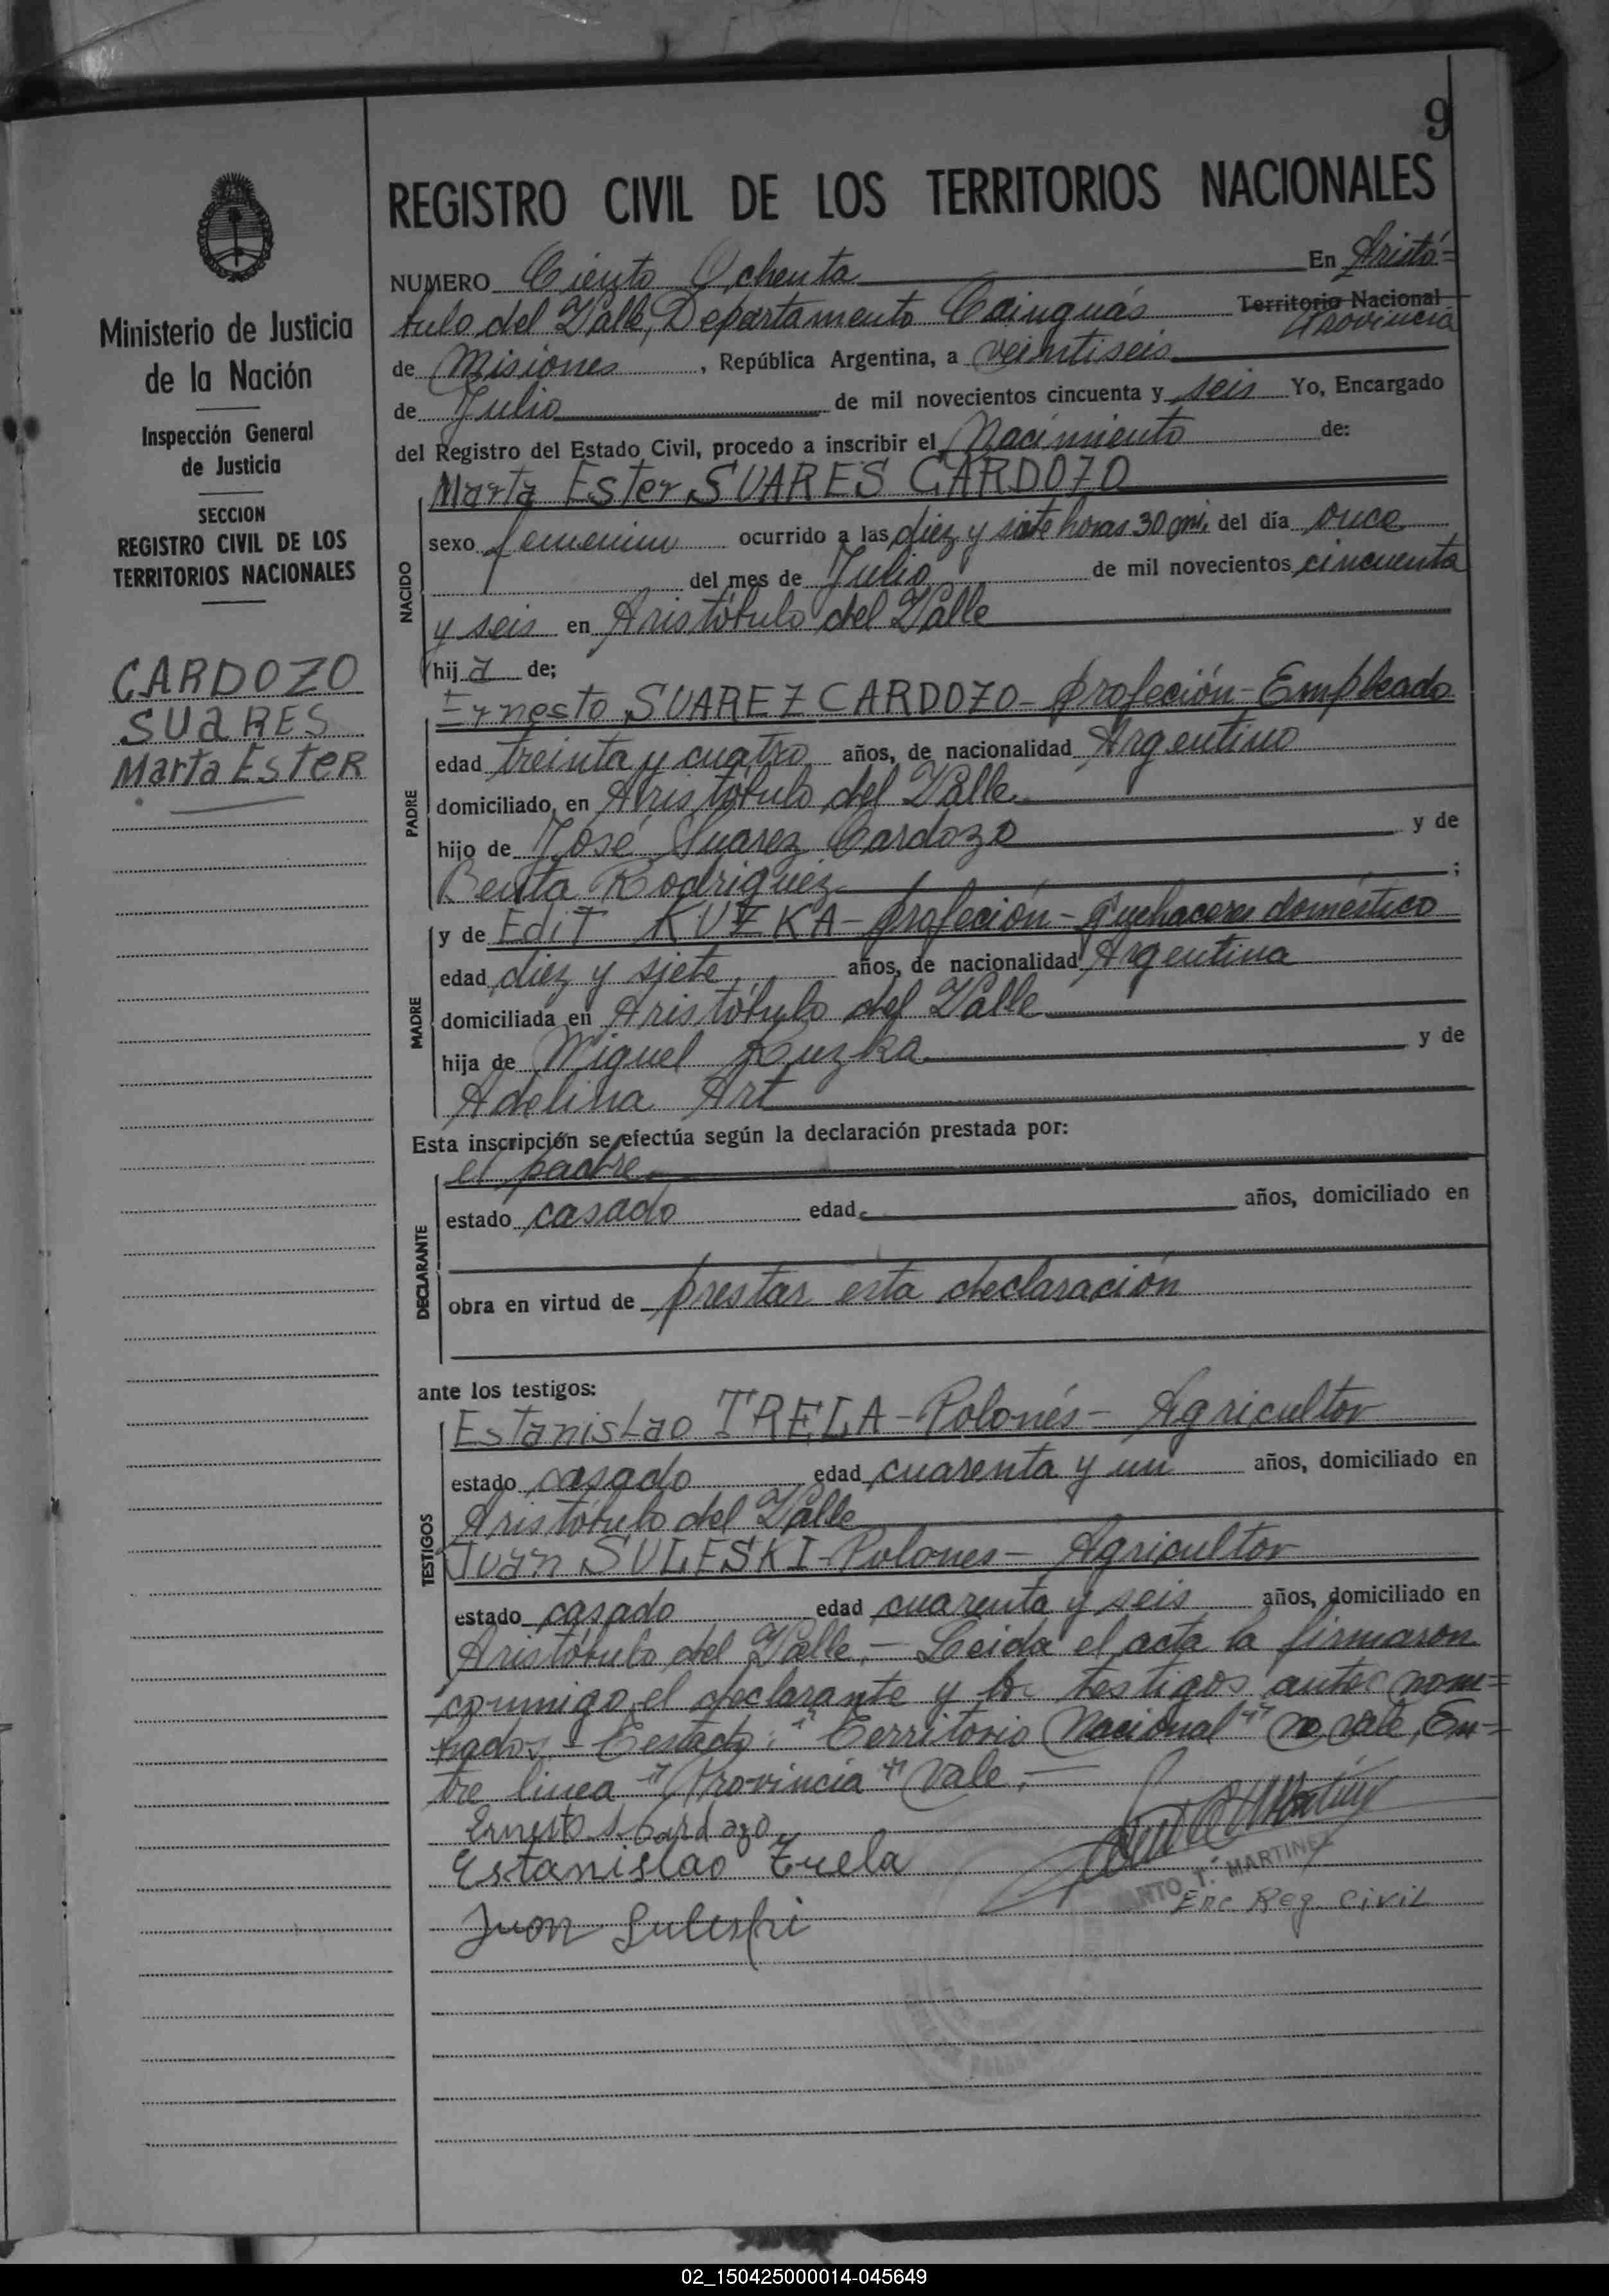 9
Ministerio de Justicia
de la Nación
Inspección General
de Justicia
SECCION
REGISTRO CIVIL DE LOS
TERRITORIOS NACIONALES
CARDOZO
SUaRES
Marta EsTeR
REGISTRO CIVIL DE LOS TERRITORIOS NACIONALES
NUMERO Ciento Ochenta En Aristó=
tulo del Valle, Departamento Cainguás Territorio Nacional
Provincia
de Misiones, República Argentina, a veintiseis
de Julio de mil novecientos cincuenta y seis Yo, Encargado
del Registro del Estado Civil, procedo a inscribir el Nacimiento de:
Marta Ester SUARES CARDOZO
NACIDO
sexo femenino ocurrido a las diez y siete horas 30 mi. del día once
del mes de Julio de mil novecientos cincuenta
y seis en Aristóbulo del Valle
hija de;
Ernesto SUAREZ CARDOZO - profeción - Empleado
PADRE
edad treinta y cuatro años, de nacionalidad Argentino
domiciliado en Aristóbulo del Valle
hijo de José Suarez Cardozo y de
Benita Rodriguez ;
y de EdiT KUZKA - profeción - quehaceres doméstico
MADRE
edad diez y siete años, de nacionalidad Argentina
domiciliada en Aristóbulo del Valle
hija de Miguel Kuzka y de
Adelina Art
Esta inscripción se efectúa según la declaración prestada por:
el padre
DECLARANTE
estado casado edad años, domiciliado en
obra en virtud de prestar esta declaración
ante los testigos:
EsTanisLao TRELA - Polonés - Agricultor
TESTIGOS
estado casado edad cuarenta y un años, domiciliado en
Aristóbulo del Valle
Juan SULESKI - Polones - Agricultor
estado casado edad cuarenta y seis años, domiciliado en
Aristóbulo del Valle. - Leida el acta la firmaron
conmigo el declarante y los testigos antes nom=
brados. - Testado: "Territorio Nacional" no vale, En=
tre linea "Provincia" Vale. -
Ernesto S. Cardozo
Estanislao Trela
Juon Suleski
T. MARTINEZ
Enc. Reg. Civil
02_150425000014-045649